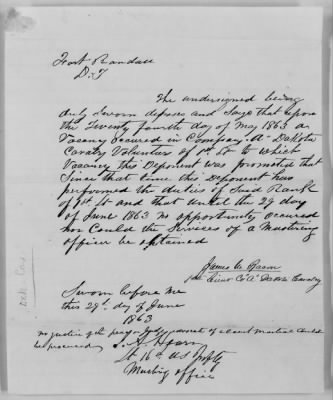 Fort Randall
D.T
The undersigned being
duly Sworn deposes and Says that upon
the Twenty fourth day of May 1863 a
Vacancy occured in Company "A" Dakota
Cavalry Volunteers of 1st Lt to which
Vacancy this Deponent was promoted that
Since that time this Deponent has
performed the duties of Said Rank
of 1st Lt and that until the 29 day
of June 1863 no opportunity occured
nor Could the Services of a Mustering
officer be obtained
James M Bacon
1st Lieut Co "A" Dakota Cavalry
Sworn before me
this 29th day of June
1863
no justice of the peace or judge advocate of a Court Martial Could
be procured
Lt 16th US Infty
Musting officer